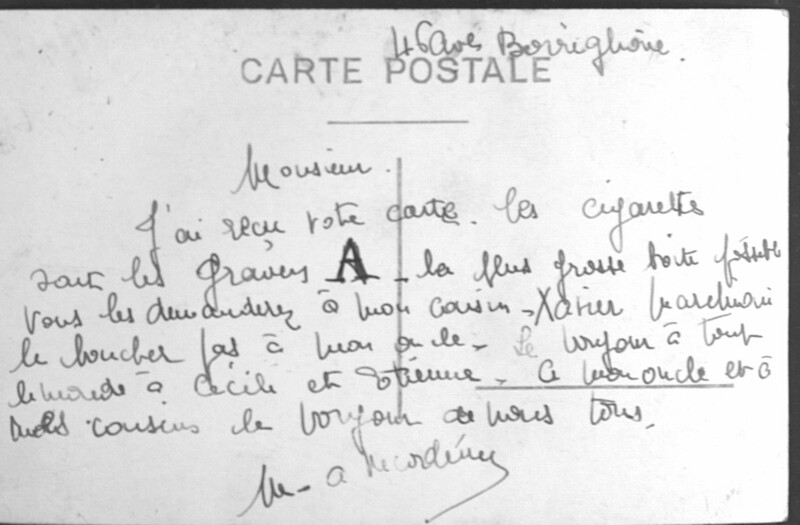 46 Ave Borriglione.
CARTE POSTALE
Monsieur.
J'ai reçu votre carte. les cigarettes
sont les Gravens A - la plus grosse boite possible
Vous les demanderez à mon cousin - Xavier
le boucher pas à mon oncle - Le bonjour à tout
le monde à Cécile et Etienne - A mon oncle et à
mes cousins le bonjour de nous tous.
M - A